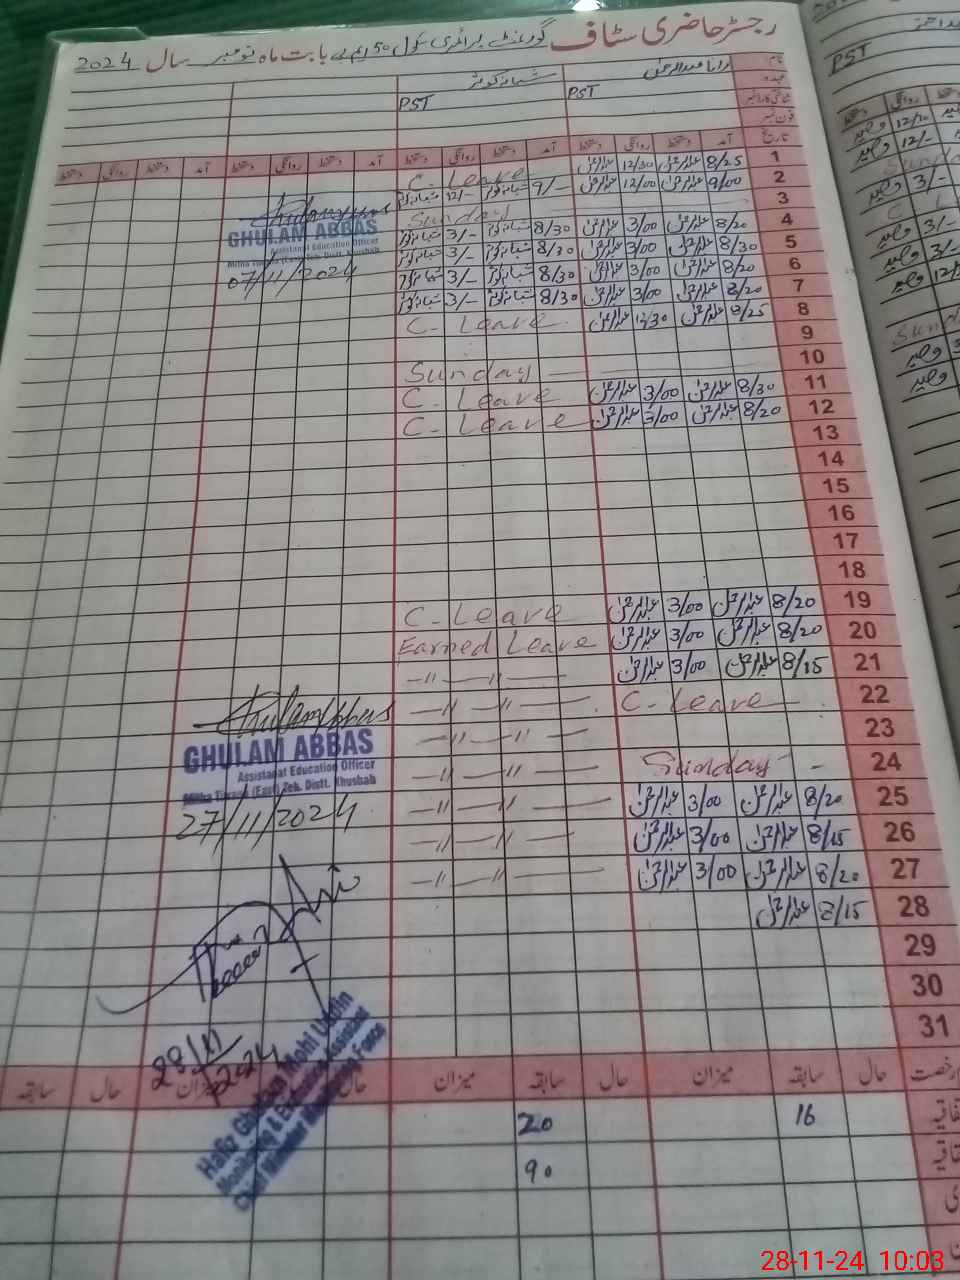 رجسٹر حاضری سٹاف گورنمنٹ پرائمری سکول 50 ایم بی بابت ماہ نومبر سال 2024
نام
عہدہ PST PST
شناختی کارڈ نمبر
فون نمبر
تاریخ آمد دستخط روانگی دستخط آمد دستخط روانگی دستخط آمد دستخط روانگی دستخط
1 8/25 عبدالرحمٰن 12/30 عبدالرحمٰن C. Leave
2 9/00 عبدالرحمٰن 12/00 عبدالرحمٰن 9/- شبانہ کوثر 12/- شبانہ کوثر
3 Sunday
4 8/20 عبدالرحمٰن 3/00 عبدالرحمٰن 8/30 شبانہ کوثر 3/- شبانہ کوثر
5 8/30 عبدالرحمٰن 3/00 عبدالرحمٰن 8/30 شبانہ کوثر 3/- شبانہ کوثر
6 8/20 عبدالرحمٰن 3/00 عبدالرحمٰن 8/30 شبانہ کوثر 3/- شبانہ کوثر
7 8/20 عبدالرحمٰن 3/00 عبدالرحمٰن 8/30 شبانہ کوثر 3/- شبانہ کوثر
8 8/25 عبدالرحمٰن 12/30 عبدالرحمٰن C. Leave
9
10 Sunday
11 8/30 عبدالرحمٰن 3/00 عبدالرحمٰن C. Leave
12 8/20 عبدالرحمٰن 3/00 عبدالرحمٰن C. Leave
13
14
15
16
17
18
19 8/20 عبدالرحمٰن 3/00 عبدالرحمٰن C. Leave
20 8/20 عبدالرحمٰن 3/00 عبدالرحمٰن Earned Leave
21 8/15 عبدالرحمٰن 3/00 عبدالرحمٰن —"—"—
22 C. Leave —"—"—
23 —"—"—
24 Sunday —"—"—
25 8/20 عبدالرحمٰن 3/00 عبدالرحمٰن —"—"—
26 8/15 عبدالرحمٰن 3/00 عبدالرحمٰن —"—"—
27 8/20 عبدالرحمٰن 3/00 عبدالرحمٰن —"—"—
28 8/15 عبدالرحمٰن
29
30
31
GHULAM ABBAS
Assistanat Education Officer
Mitha Tiwana (East) Teh. Distt. Khushab
07/11/2024
GHULAM ABBAS
Assistanat Education Officer
Mitha Tiwana (East) Teh. Distt. Khushab
27/11/2024
28/11/2024
Hafiz Ghulam Mohi Uddin
Monitoring & Evaluation Assistant
Chief Minister Monitoring Force
رخصت حال سابقہ میزان حال سابقہ میزان حال میزان حال سابقہ
16 20
90
PST
28-11-24 10:03